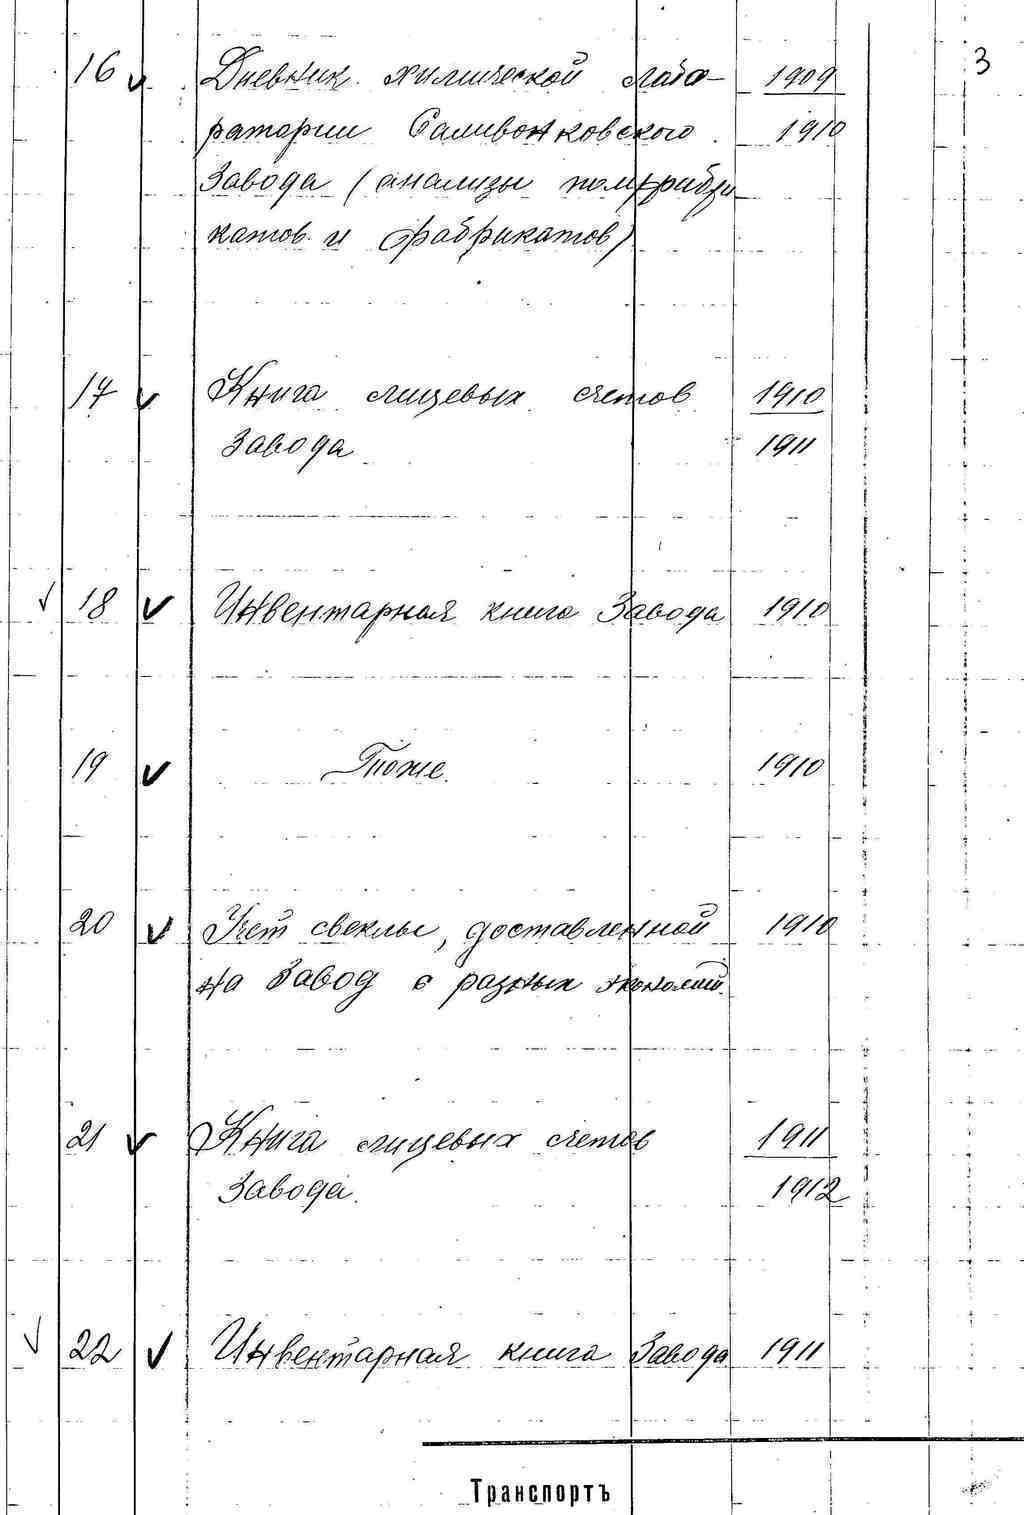 3
16 Дневник химической лабо- 1909
ратории Саливонковского 1910
Завода (анализы полуфабри
катов и фабрикатов)
17 Книга лицевых счетов 1910
Завода 1911
18 Инвентарная книга Завода 1910
19 Тоже. 1910
20 Учет свеклы, доставленной 1910
на Завод с разных экономий.
21 Книга лицевых счетов 1911
Завода. 1912
22 Инвентарная книга Завода 1911
Транспортъ